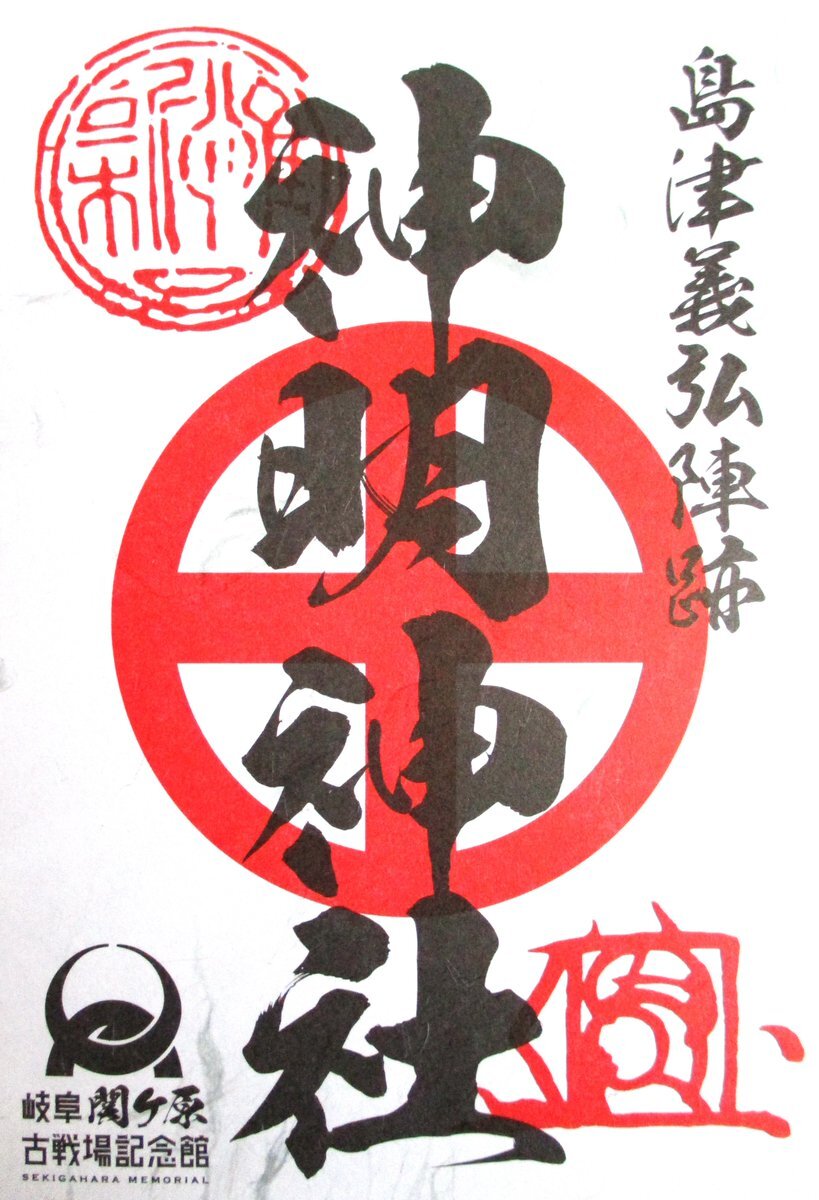 島津義弘陣跡
神明神社
岐阜関ケ原
古戦場記念館
SEKIGAHARA MEMORIAL